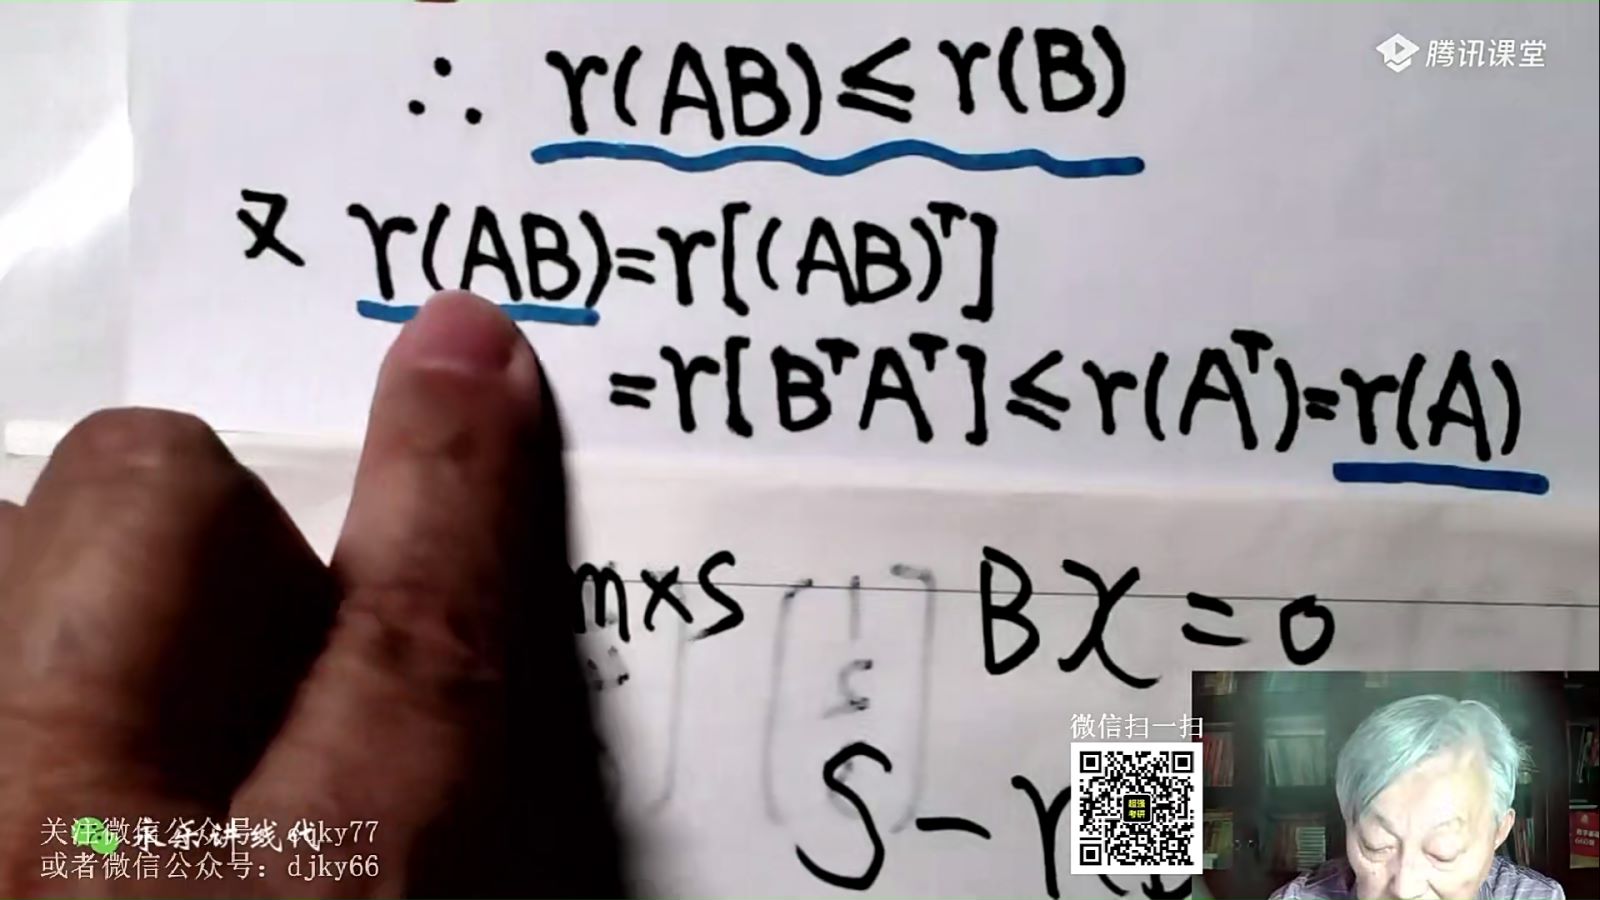 腾讯课堂
∴ r(AB)≤r(B)
又 r(AB)=r[(AB)ᵀ]
=r[BᵀAᵀ]≤r(Aᵀ)=r(A)
m×s BX=0
s-r
微信扫一扫
超强
考研
永乐讲线代
关注微信公众号:djky77
或者微信公众号:djky66